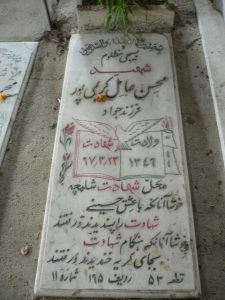 بسیجی مظلوم
شهید
محسن عامل کریمی پور
فرزند جواد
ولادت شهادت
۱۳۴۶ ۶۷/۳/۲۳
محل شهادت شلمچه
خوشا آنانکه با عشق حسینی
شهادت را پسندیدند و رفتند
خوشا آنانکه هنگام شهادت
بجای گریه خندیدند و رفتند
قطعه ۵۳ ردیف ۱۶۵ شماره ۱۱